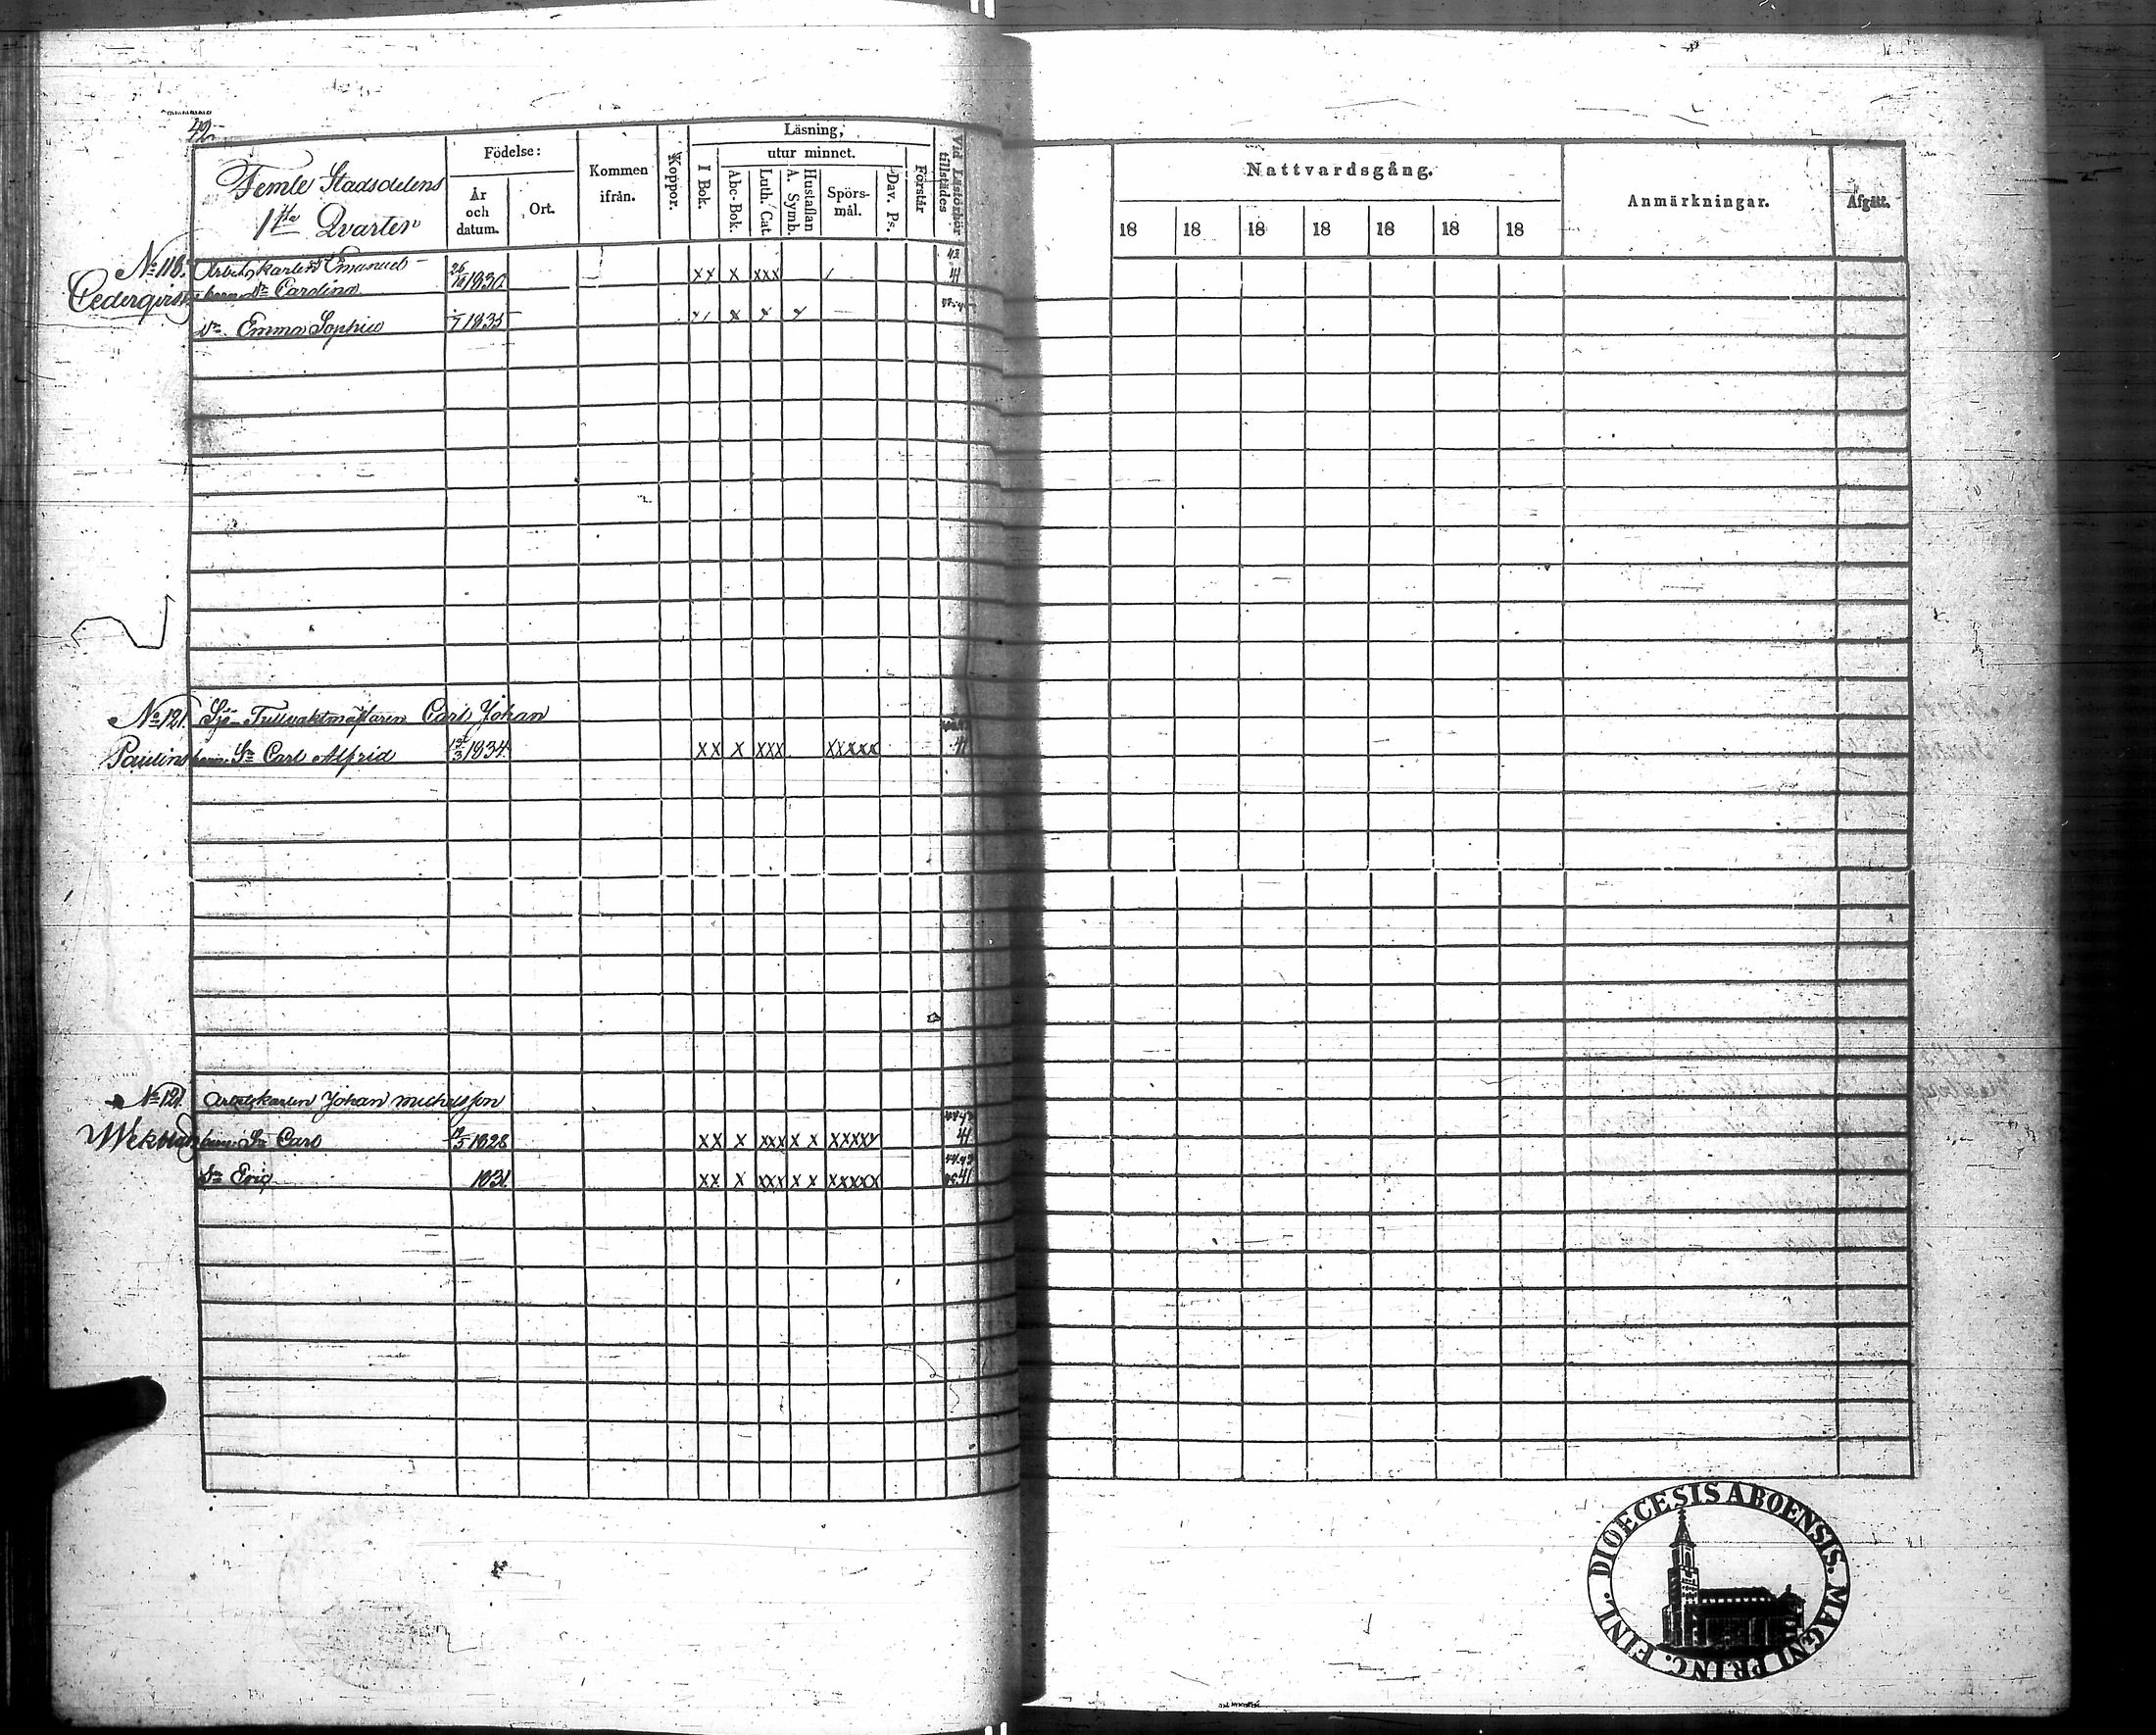 42
Femte Stadsdelens
1sta Qvarter
Födelse:
År
och
datum.
Ort.
Kommen
ifrån.
Koppor.
Läsning,
I Bok.
utur minnet.
Abc-Bok.
Luth. Cat.
A. Symb.
Hustaflan
Spörs-
mål.
Dav. Ps.
Förstår
Vid Läsförhör
tillstädes
Nattvardsgång.
18 18 18 18 18 18 18
Anmärkningar.
Afgått.
43
No 118. Arbetskarlen Emanuel
Cederqvists barn Dr Carolina 1830. xx x xxx 41
Dr Emma Sophia 1835
No 121. Sjö-Tullvaktmästaren Carl Johan
Paulins barn. Sn Carl Alfrid 3 1834. xx x xxx xxxxx 41
No 121. Arbetskarlen Johan Michelsson
barn. Sn Carl 1828 xx x xxx x x xxxxx 41
Sn Eric 1831. xx x xxx x x xxxxx 41
DIOECESIS ABOENSIS. MAGNI PRINC. FINL.